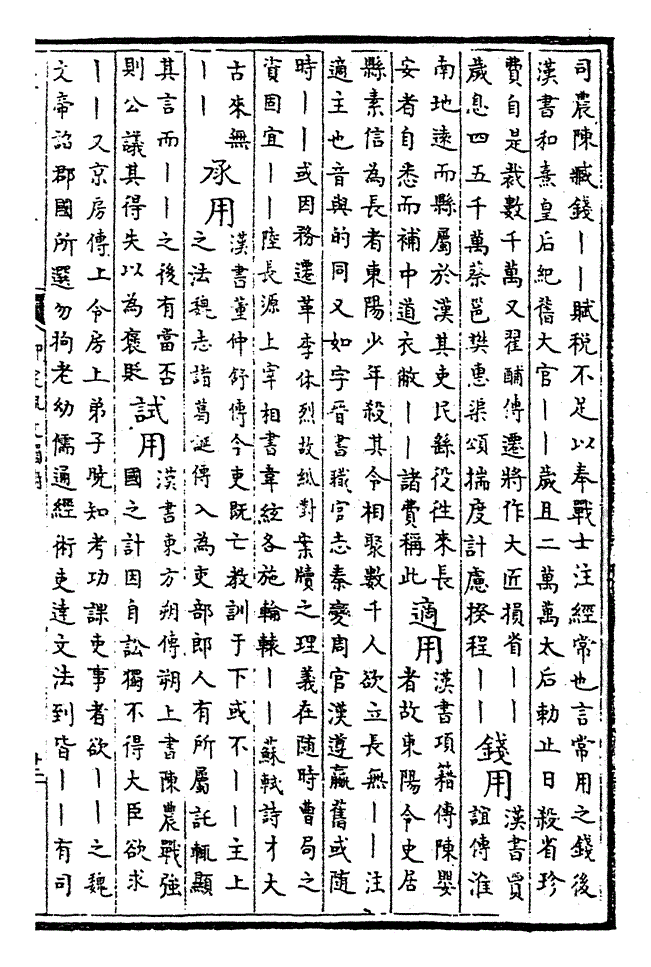 司農陳臧錢丨丨賦税不足以奉戰士注經常也言常用之錢後
漢書和熹皇后紀舊大官丨丨歲且二萬萬太后勅止日殺省珍
費自是裁數千萬又翟酺傳遷將作大匠損省丨丨
歲息四五千萬蔡邕樊惠渠頌揣度計慮揆程丨丨
錢用
漢書賈
誼傳淮
南地遠而縣屬於漢其吏民繇役徃來長
安者自悉而補中道衣敝丨丨諸費稱此
適用
漢書項籍傳陳嬰
者故東陽令史居
縣素信為長者東陽少年殺其令相聚數千人欲立長無丨丨注
適主也音與的同又如字晉書職官志秦變周官漢遵嬴舊或隨
時丨丨或因務遷革李休烈故紙對案牘之理義在隨時曹局之
資固宜丨丨陸長源上宰相書韋絃各施輪轅丨丨蘇軾詩才大
古來無
丨丨
承用
漢書董仲舒傳今吏既亡教訓于下或不丨丨主上
之法魏志諸葛誕傳入為吏部郎人有所屬託輒顯
其言而丨丨之後有當否
則公議其得失以為褒貶
試用
漢書東方朔傳朔上書陳農戰強
國之計因自訟獨不得大臣欲求
丨丨又京房傳上令房上弟子曉知考功課吏事者欲丨丨之魏
文帝詔郡國所選勿拘老幼儒通經術吏達文法到皆丨丨有司